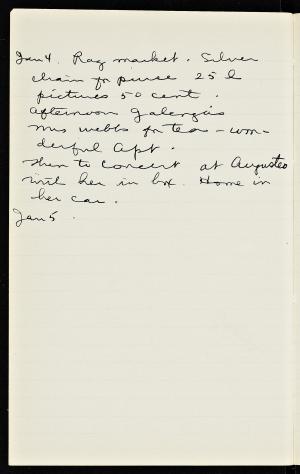 Jan 4. Rag market. Silver
chain for purse 25 l
pictures 50 cent.
afternoon
Mrs Webbs for tea - won-
derful Apt.
then to concert at Augusteo
with her in box. Home in
her car.
Jan 5.